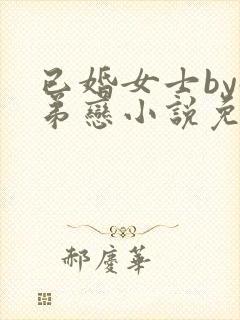 已婚女士by
弟戀小說免
郝慶華